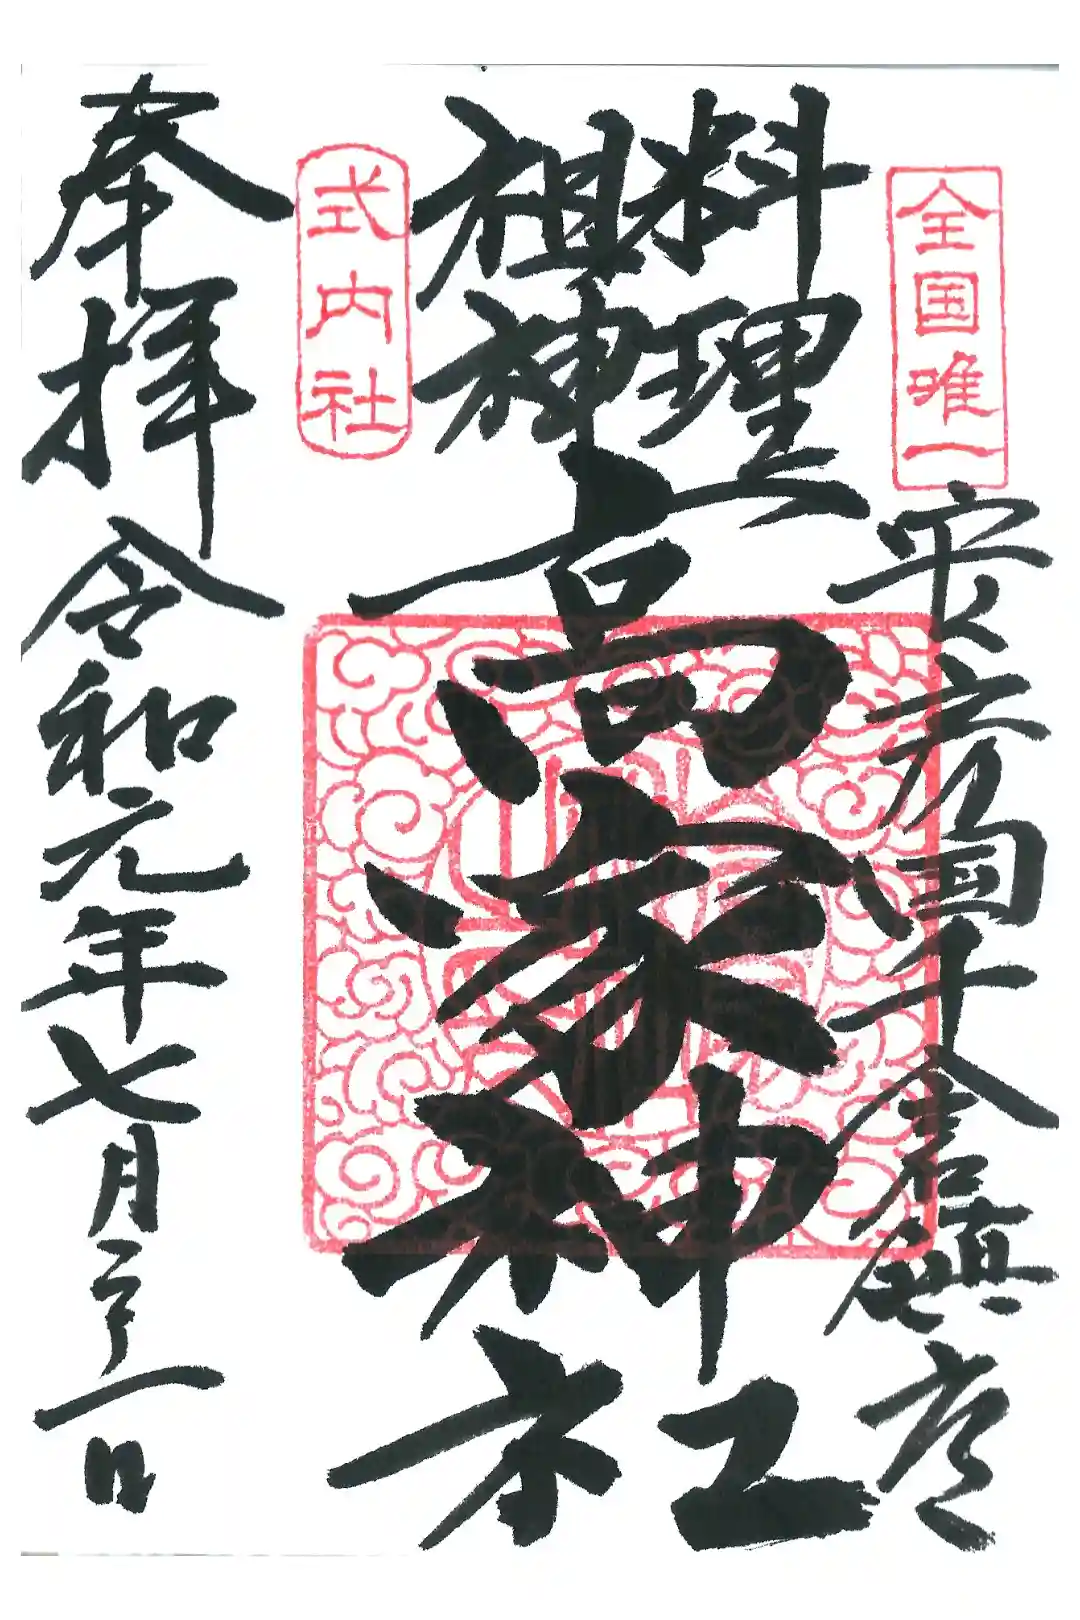 全国唯一
安房国千倉鎮座
料理之
祖神
高家神社
式内社
奉拝
令和元年七月
一日